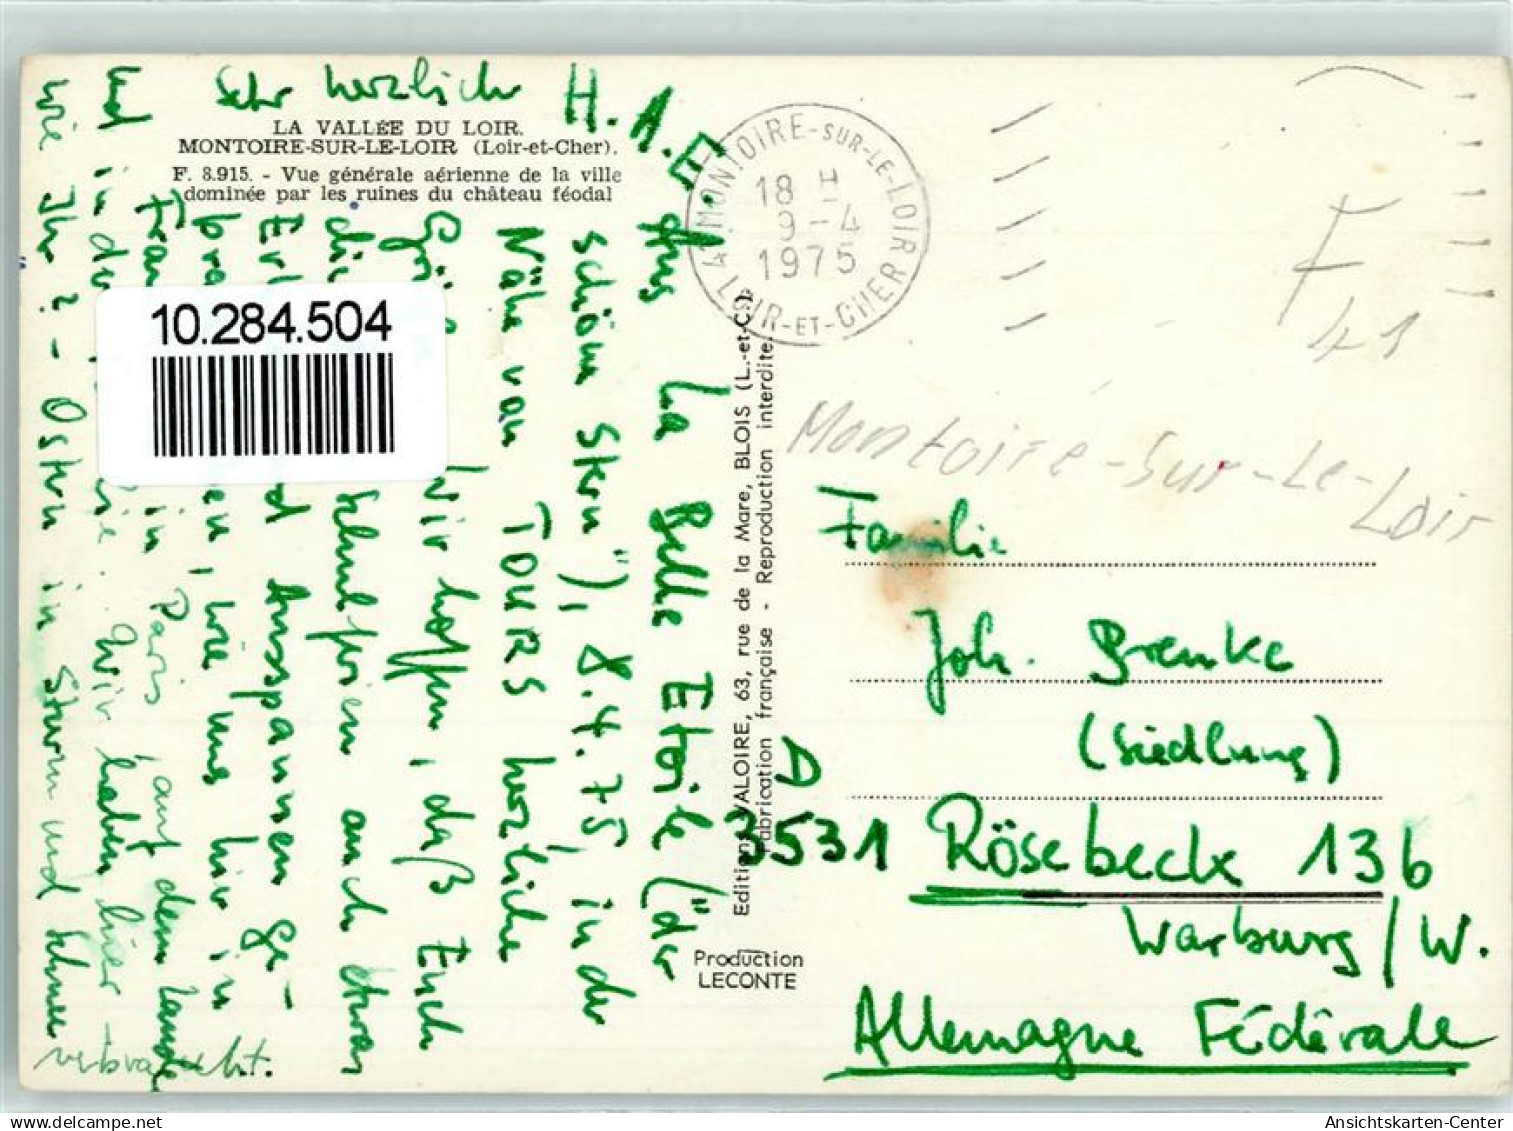 LA VALLÉE DU LOIR.
MONTOIRE-SUR-LE-LOIR (Loir-et-Cher).
F. 8.915. - Vue générale aérienne de la ville
dominée par les ruines du château féodal
10.284.504
Aus La Belle Etoile ("der
schöne Stern"), 8.4.75, in der
Nähe von TOURS herzliche
Wir hoffen, daß Euch
die Schulferien auch etwas
Ausspannen ge-
wie uns hier in
in Paris, auf dem Lande
und in der Wir haben hier -
wie Ihr? - Ostern in Sturm und Schnee
verbracht.
Sehr herzlich H. A. E.
41 MONTOIRE-SUR-LE-LOIR
18 H
9-4
1975
LOIR-ET-CHER
F
41
Montoire-Sur-Le-Loir
Editions VALOIRE, 63, rue de la Mare, BLOIS (L.-et-C.).
Fabrication française - Reproduction interdite.
Production
LECONTE
Familie
Joh. Brenke
(Siedlung)
D
3531 Rösebeck 136
Warburg/W.
Allemagne Fédérale
Ansichtskarten-Center